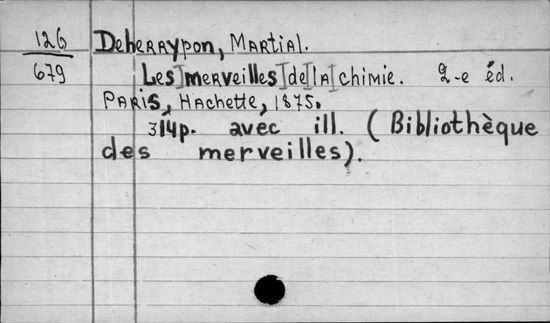 126 Deherrypon, Martial.
679 Les merveilles de la chimie. 2-e éd.
Paris, Hachette, 1875.
314p. avec ill. (Bibliothèque
des merveilles).